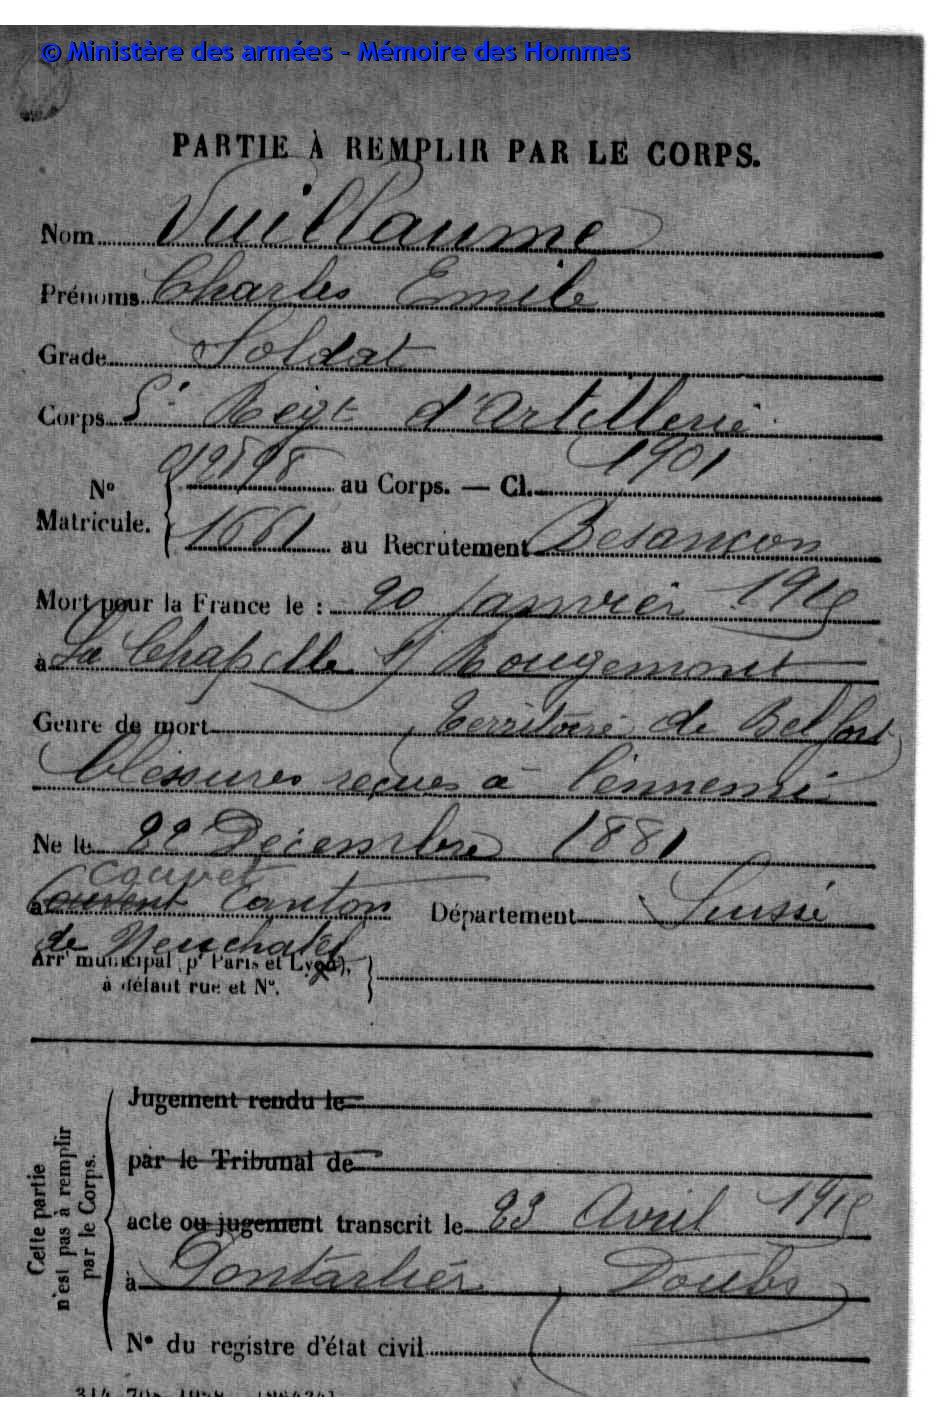 © Ministère des armées - Mémoire des Hommes
PARTIE À REMPLIR PAR LE CORPS.
Nom Vuillaume
Prénoms Charles Emile
Grade Soldat
Corps 5e Regt d'Artillerie
No Matricule. 
au Corps. — Cl. 1901
1661 au Recrutement Besançon
Mort pour la France le : 20 janvier 1915
à La Chapelle s/ Rougemont
Genre de mort (Territoire de Belfort)
blessures reçues à l'ennemi
Né le 22 Décembre 1881
Couvet
à Couvent Canton Département Suisse
de Neuchatel
Arrt municipal (pr Paris et Lyon),
à défaut rue et No.
Cette partie
n'est pas à remplir
par le Corps.
Jugement rendu le
par le Tribunal de
acte ou jugement transcrit le 23 Avril 1915
à Pontarlier Doubs
No du registre d'état civil